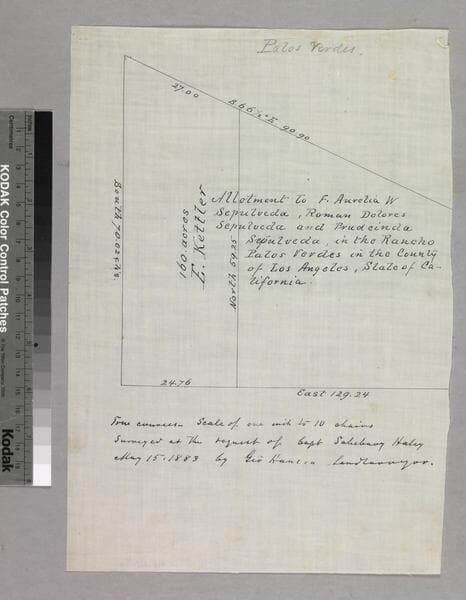 Palos Verdes.
27.00
S. 66 ½ E. 90.90
South 70.02 chs.
160 acres
E. Kettler
North 59.25
Allotment to F. Aurelia W
Sepulveda, Roman Dolores
Sepulveda and Prudeinda
Sepulveda, in the Rancho
Palos Verdes in the County
of Los Angeles, State of Ca-
lifornia.
24.76
East 129.24
True courses. Scale of one inch to 10 chains
Surveyed at the request of Capt Salisbury Haley
May 15. 1883 by Geo Hansen Landsurveyor.
KODAK Color Control Patches
Kodak
Centimetres
Inches